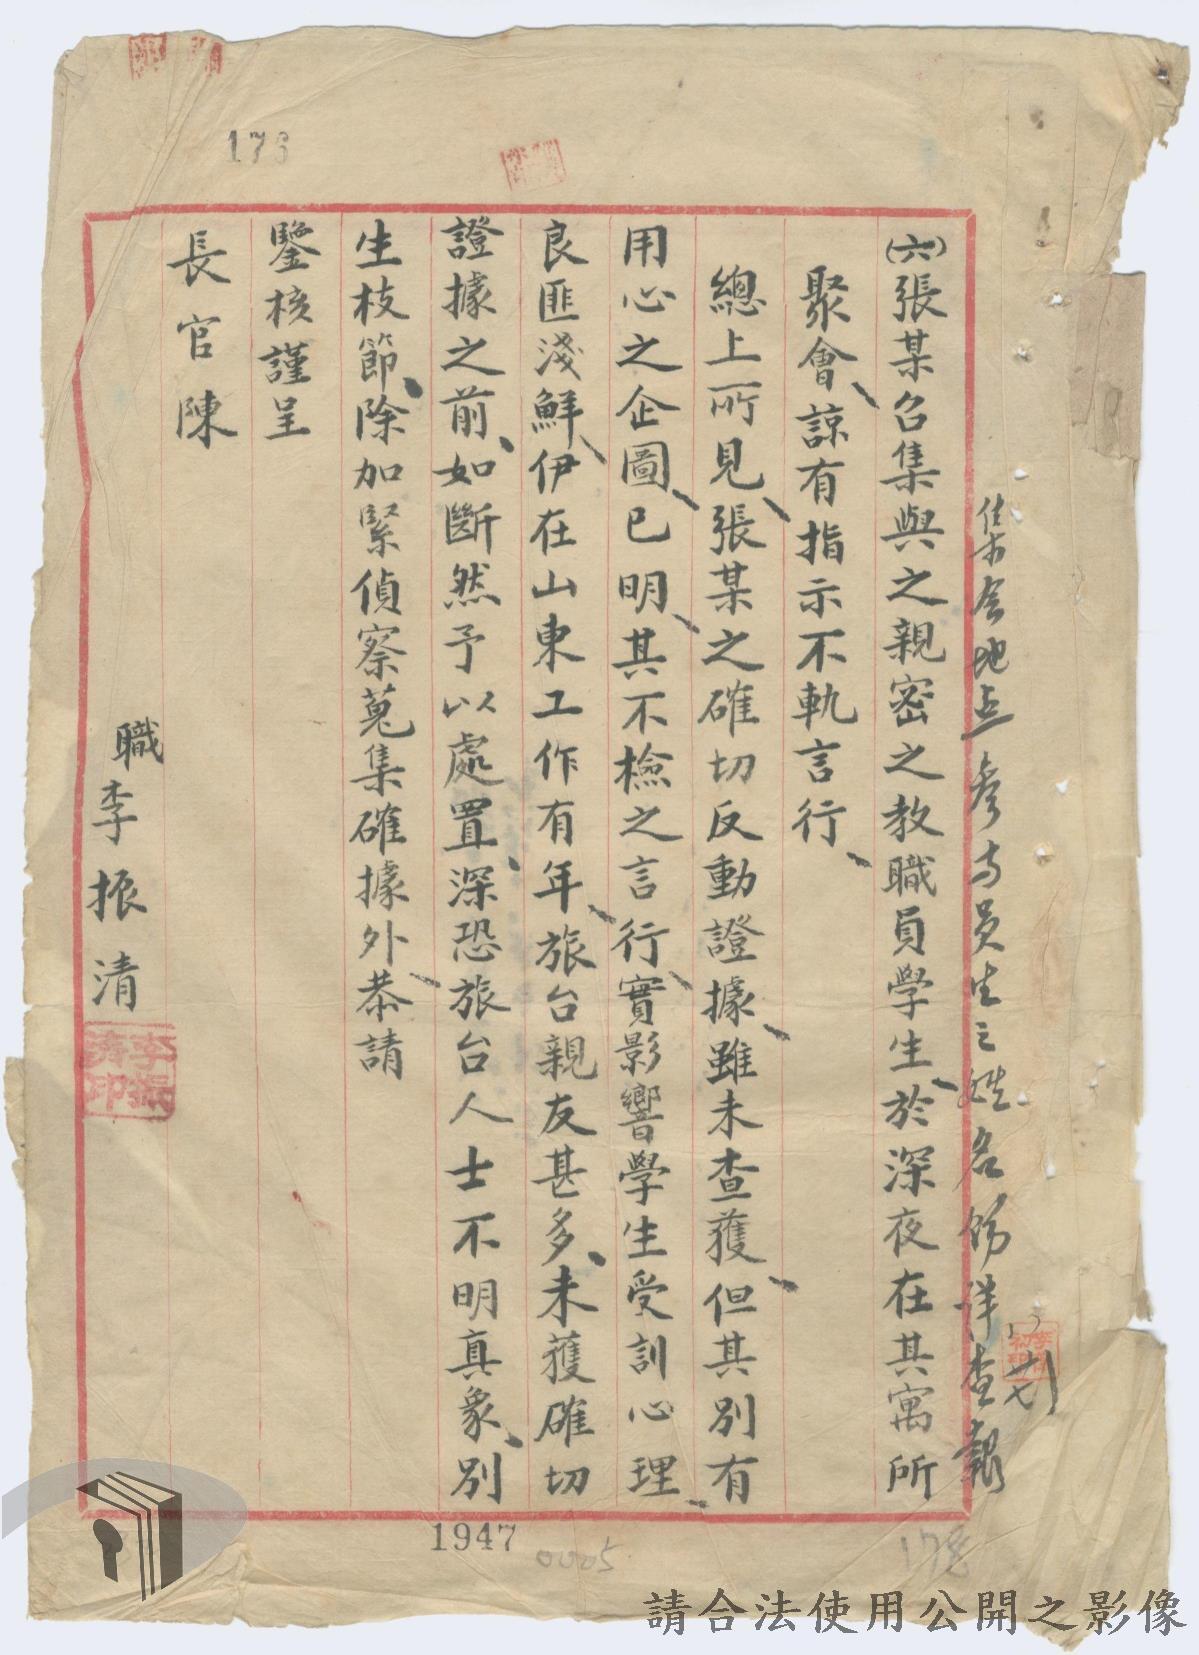 集会地点參与員生之姓名飭詳查報
廿七
(六)張某召集與之親密之教職員學生、於深夜在其寓所
聚會、諒有指示不軌言行、
總上所見、張某之確切反動證據、雖未查獲、但其別有
用心之企圖、已明、其不檢之言行、實影響學生受訓心理、
良匪淺鮮、伊在山東工作有年、旅台親友甚多、未獲確切
證據之前、如斷然予以處置、深恐旅台人士不明真象、別
生枝節、除加緊偵察蒐集確據外、恭請
鑒核謹呈
長官陳
職李振清
李振清印
176
1947
0005
178
請合法使用公開之影像